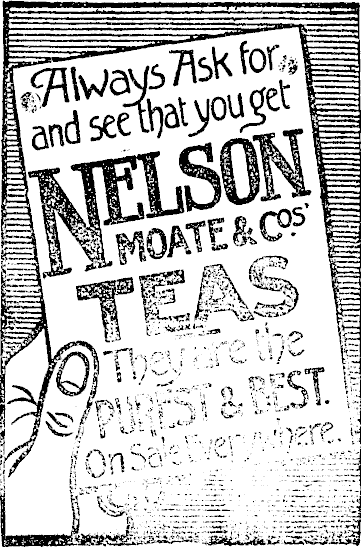 Always Ask for
and see that you get
NELSON
MOATE & Cos'
TEAS
They are the
PUREST & BEST.
On Sale Everywhere.